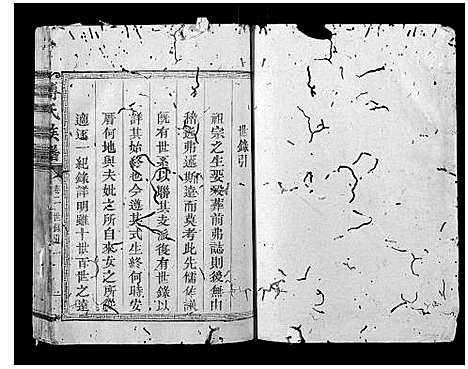 世錄引
祖宗之生娶歿葬前弗誌則後無由
稽近弗述斯遠而莫考此先儒
既有世系以聯其支派復有世錄以
詳其始終也今遵其式生終何時安
厝何地與夫妣之所自來女之所從
適逐一紀錄詳明雖十世百世之遠
氏族譜
卷一世錄引